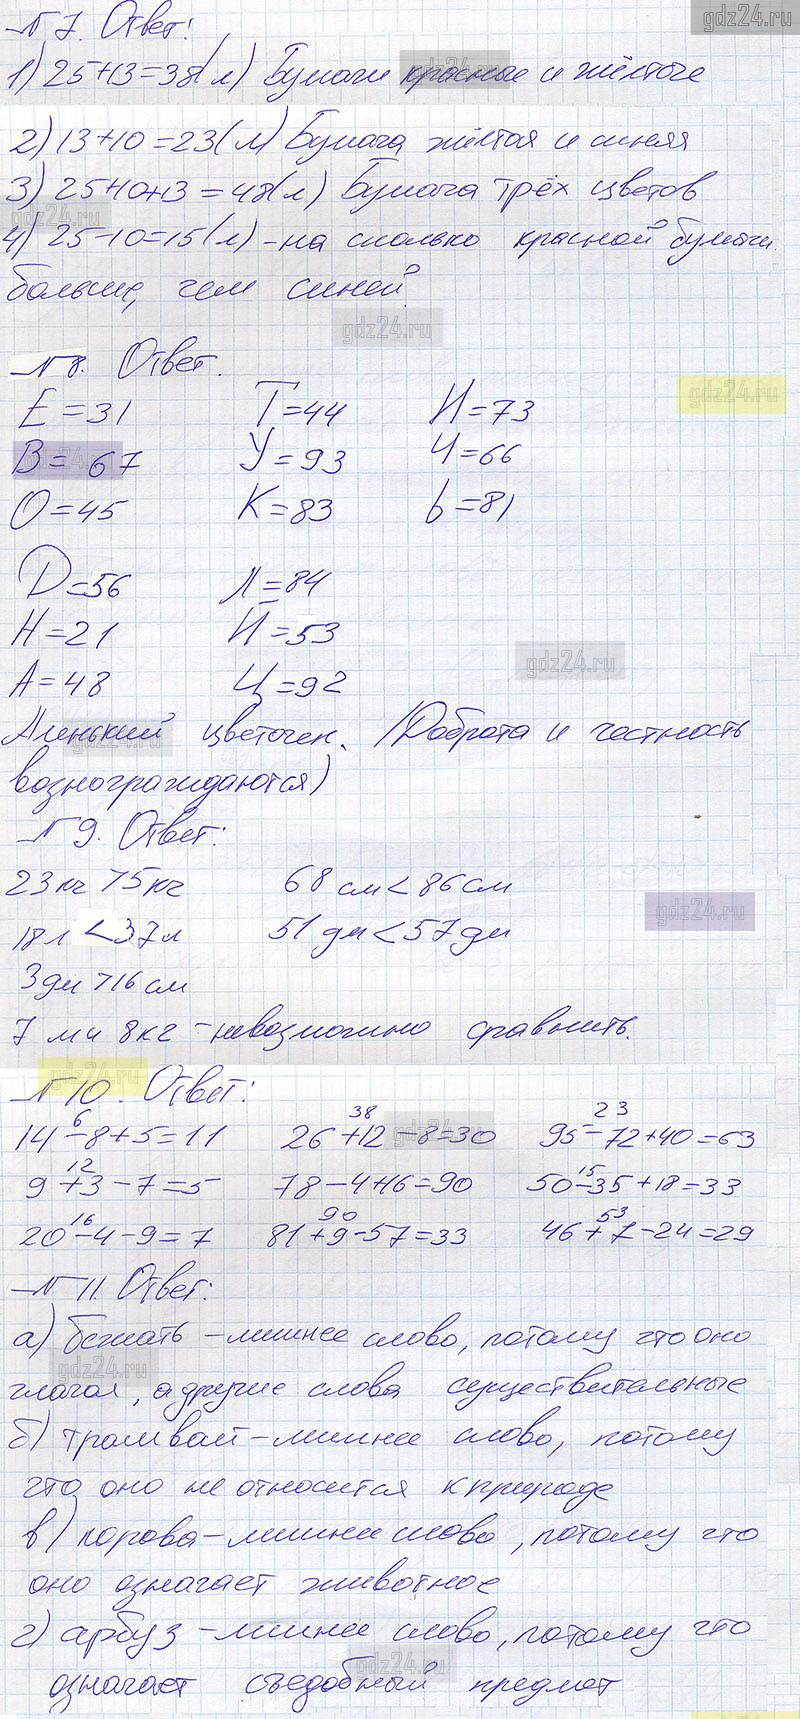 gdz24.ru
№ 7. Ответ:
1) 25+13=38(л) Бумаги красные и жёлтые
gdz24.ru
2) 13+10=23(л) Бумага жёлтая и синяя
3) 25+10+13=48(л) Бумага трёх цветов
gdz24.ru
4) 25-10=15(л) - на сколько красной бумаги
больше, чем синей.
gdz24.ru
№ 8. Ответ.
gdz24.ru
Е=31 Т=44 И=73
В=67 У=93 Ч=66
О=45 К=83 Ь=81
Д=56 Л=84
Н=21 Й=53
gdz24.ru
А=48 Ц=92
Аленький цветочек. (Доброта и честность
gdz24.ru
вознограждаются)
№ 9. Ответ:
23 кг > 5 кг 68 см < 86 см
gdz24.ru
18 л < 37 л 51 дм < 57 дм
3 дм > 16 см
7 м и 8 кг - невозможно сравнить.
gdz24.ru
№ 10. Ответ:
6 38 23
14-8+5=11 26+12-8=30 95-72+40=63
gdz24.ru
12 15
9+3-7=5 78-4+16=90 50-35+18=33
16 90 53
20-4-9=7 81+9-57=33 46+7-24=29
№ 11. Ответ:
а) бежать - лишнее слово, потому что оно
gdz24.ru
глагол, а другие слова существительные
б) трамвай - лишнее слово, потому
что оно не относится к природе
в) корова - лишнее слово, потому что
оно означает животное
г) арбуз - лишнее слово, потому что
gdz24.ru
означает съедобный предмет